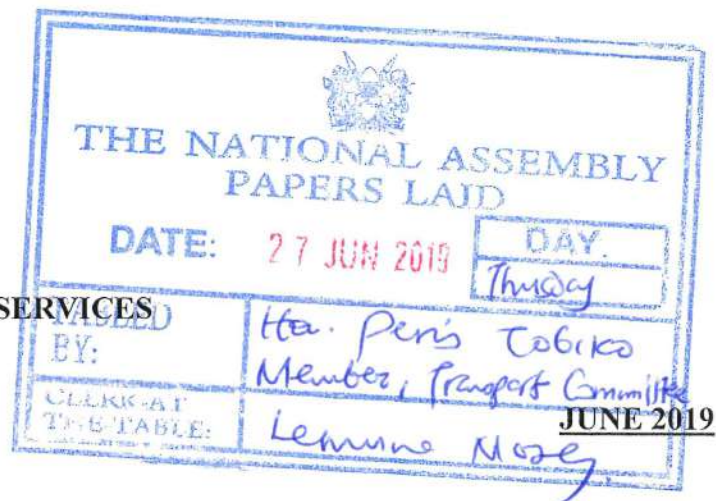 THE NATIONAL ASSEMBLY
PAPERS LAID
DATE: 27 JUN 2019 DAY.
Thursday
SERVICES
TABLED
BY:
Hon. Peris Tobiko
Member, Transport Committee
CLERK-AT
THE-TABLE:
JUNE 2019